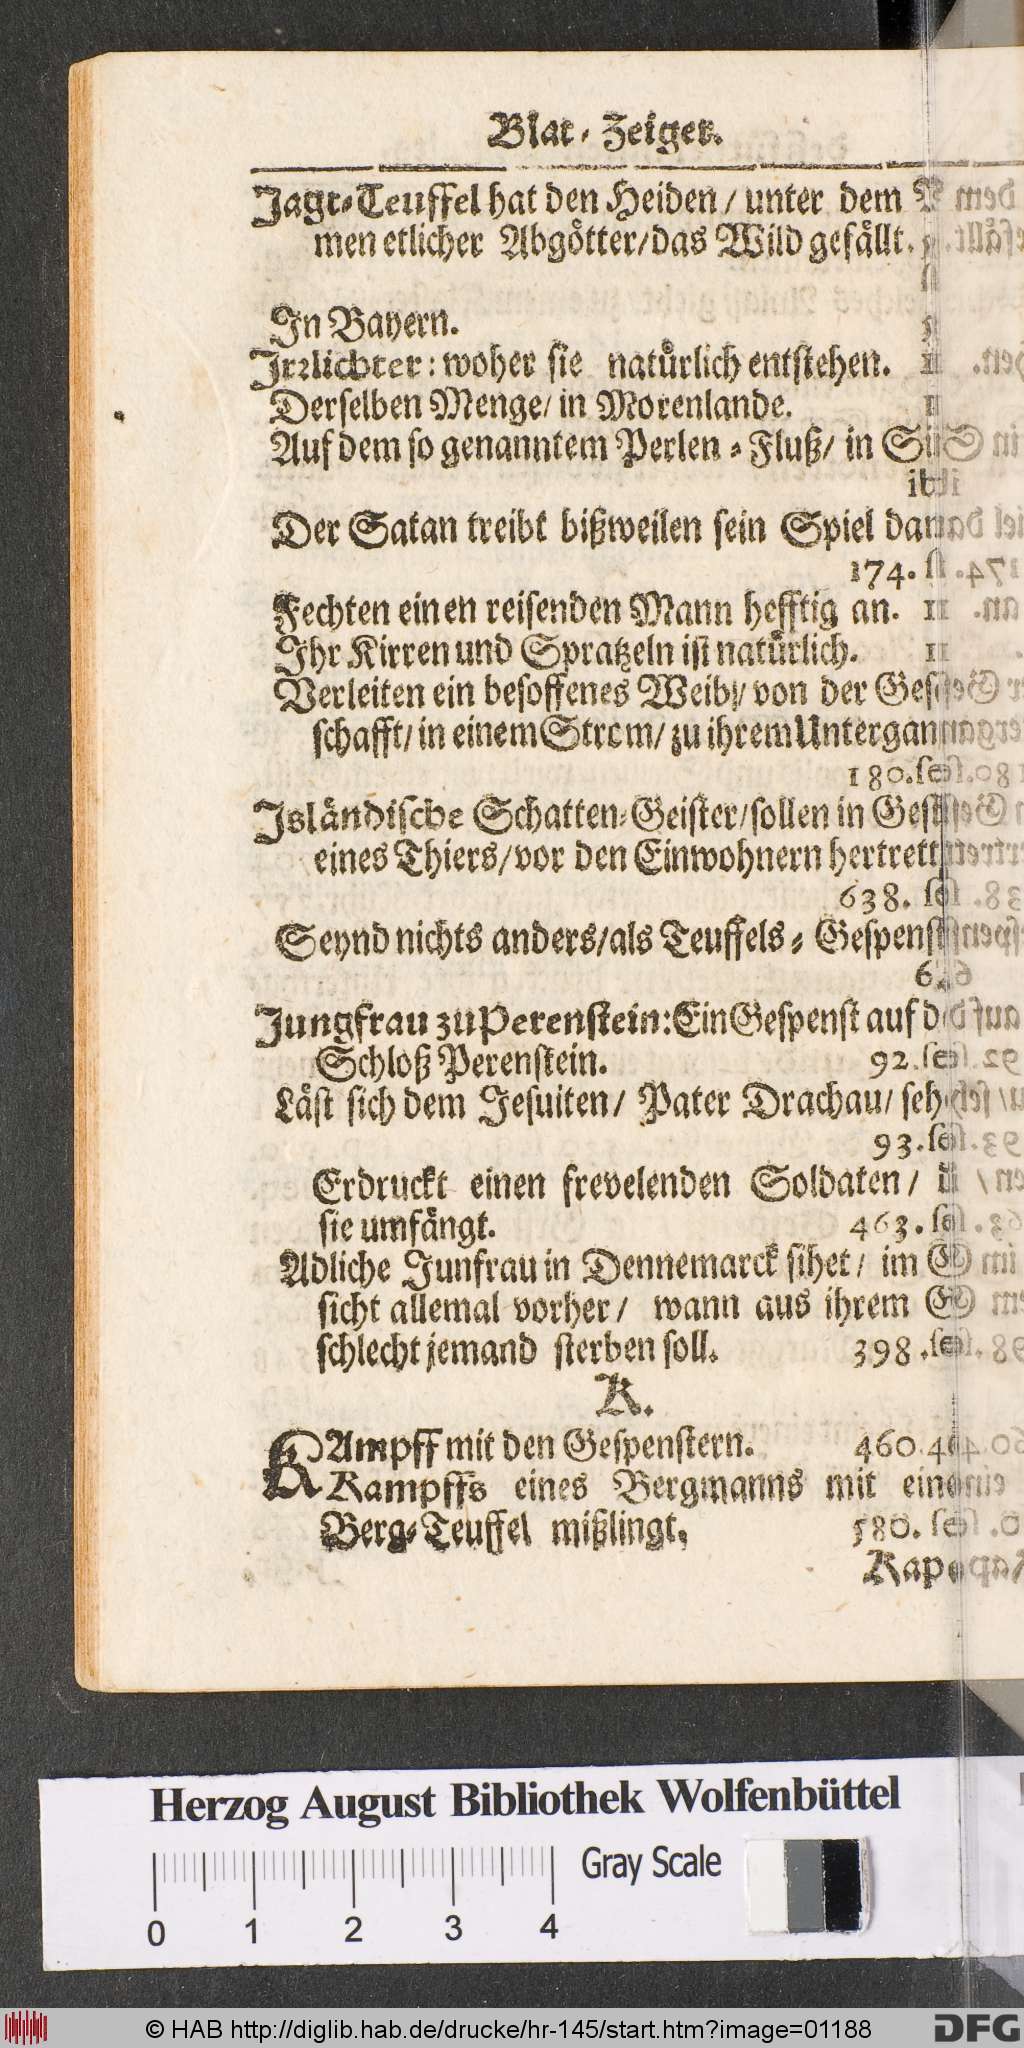 Blat-Zeiger.
Jagt-Teuffel hat den Heiden / unter dem
men etlicher Abgötter/das Wild gefällt.
In Bayern.
Irrlichter: woher sie natůrlich entstehen.
Derselben Menge/ in Morenlande.
Auf dem so genanntem Perlen-Fluß/ in
Der Satan treibt bißweilen sein Spiel
174.
Fechten einen reisenden Mann hefftig an.
Ihr Kirren und Spratzeln ist natůrlich.
Verleiten ein besoffenes Weib/ von der
schafft/ in einem Strom/ zu ihrem
180.
Isländische Schatten-Geister/sollen in
eines Thiers/vor den Einwohnern
638.
Seynd nichts anders/als Teuffels-
Jungfrau zu Perenstein: Ein Gespenst auf
Schloß Perenstein. 92.
Läst sich dem Jesuiten/ Pater Drachau/
93.
Erdruckt einen frevelenden Soldaten/
sie umfängt. 463.
Adliche Junfrau in Dennemarck sihet/ im
sicht allemal vorher/ wann aus ihrem
schlecht jemand sterben soll. 398.
K.
KAmpff mit den Gespenstern. 460.
Kampffs eines Bergmanns mit
Berg-Teuffel mißlingt. 580.
Herzog August Bibliothek Wolfenbüttel
Gray Scale
0 1 2 3 4
© HAB http://diglib.hab.de/drucke/hr-145/start.htm?image=01188
DFG